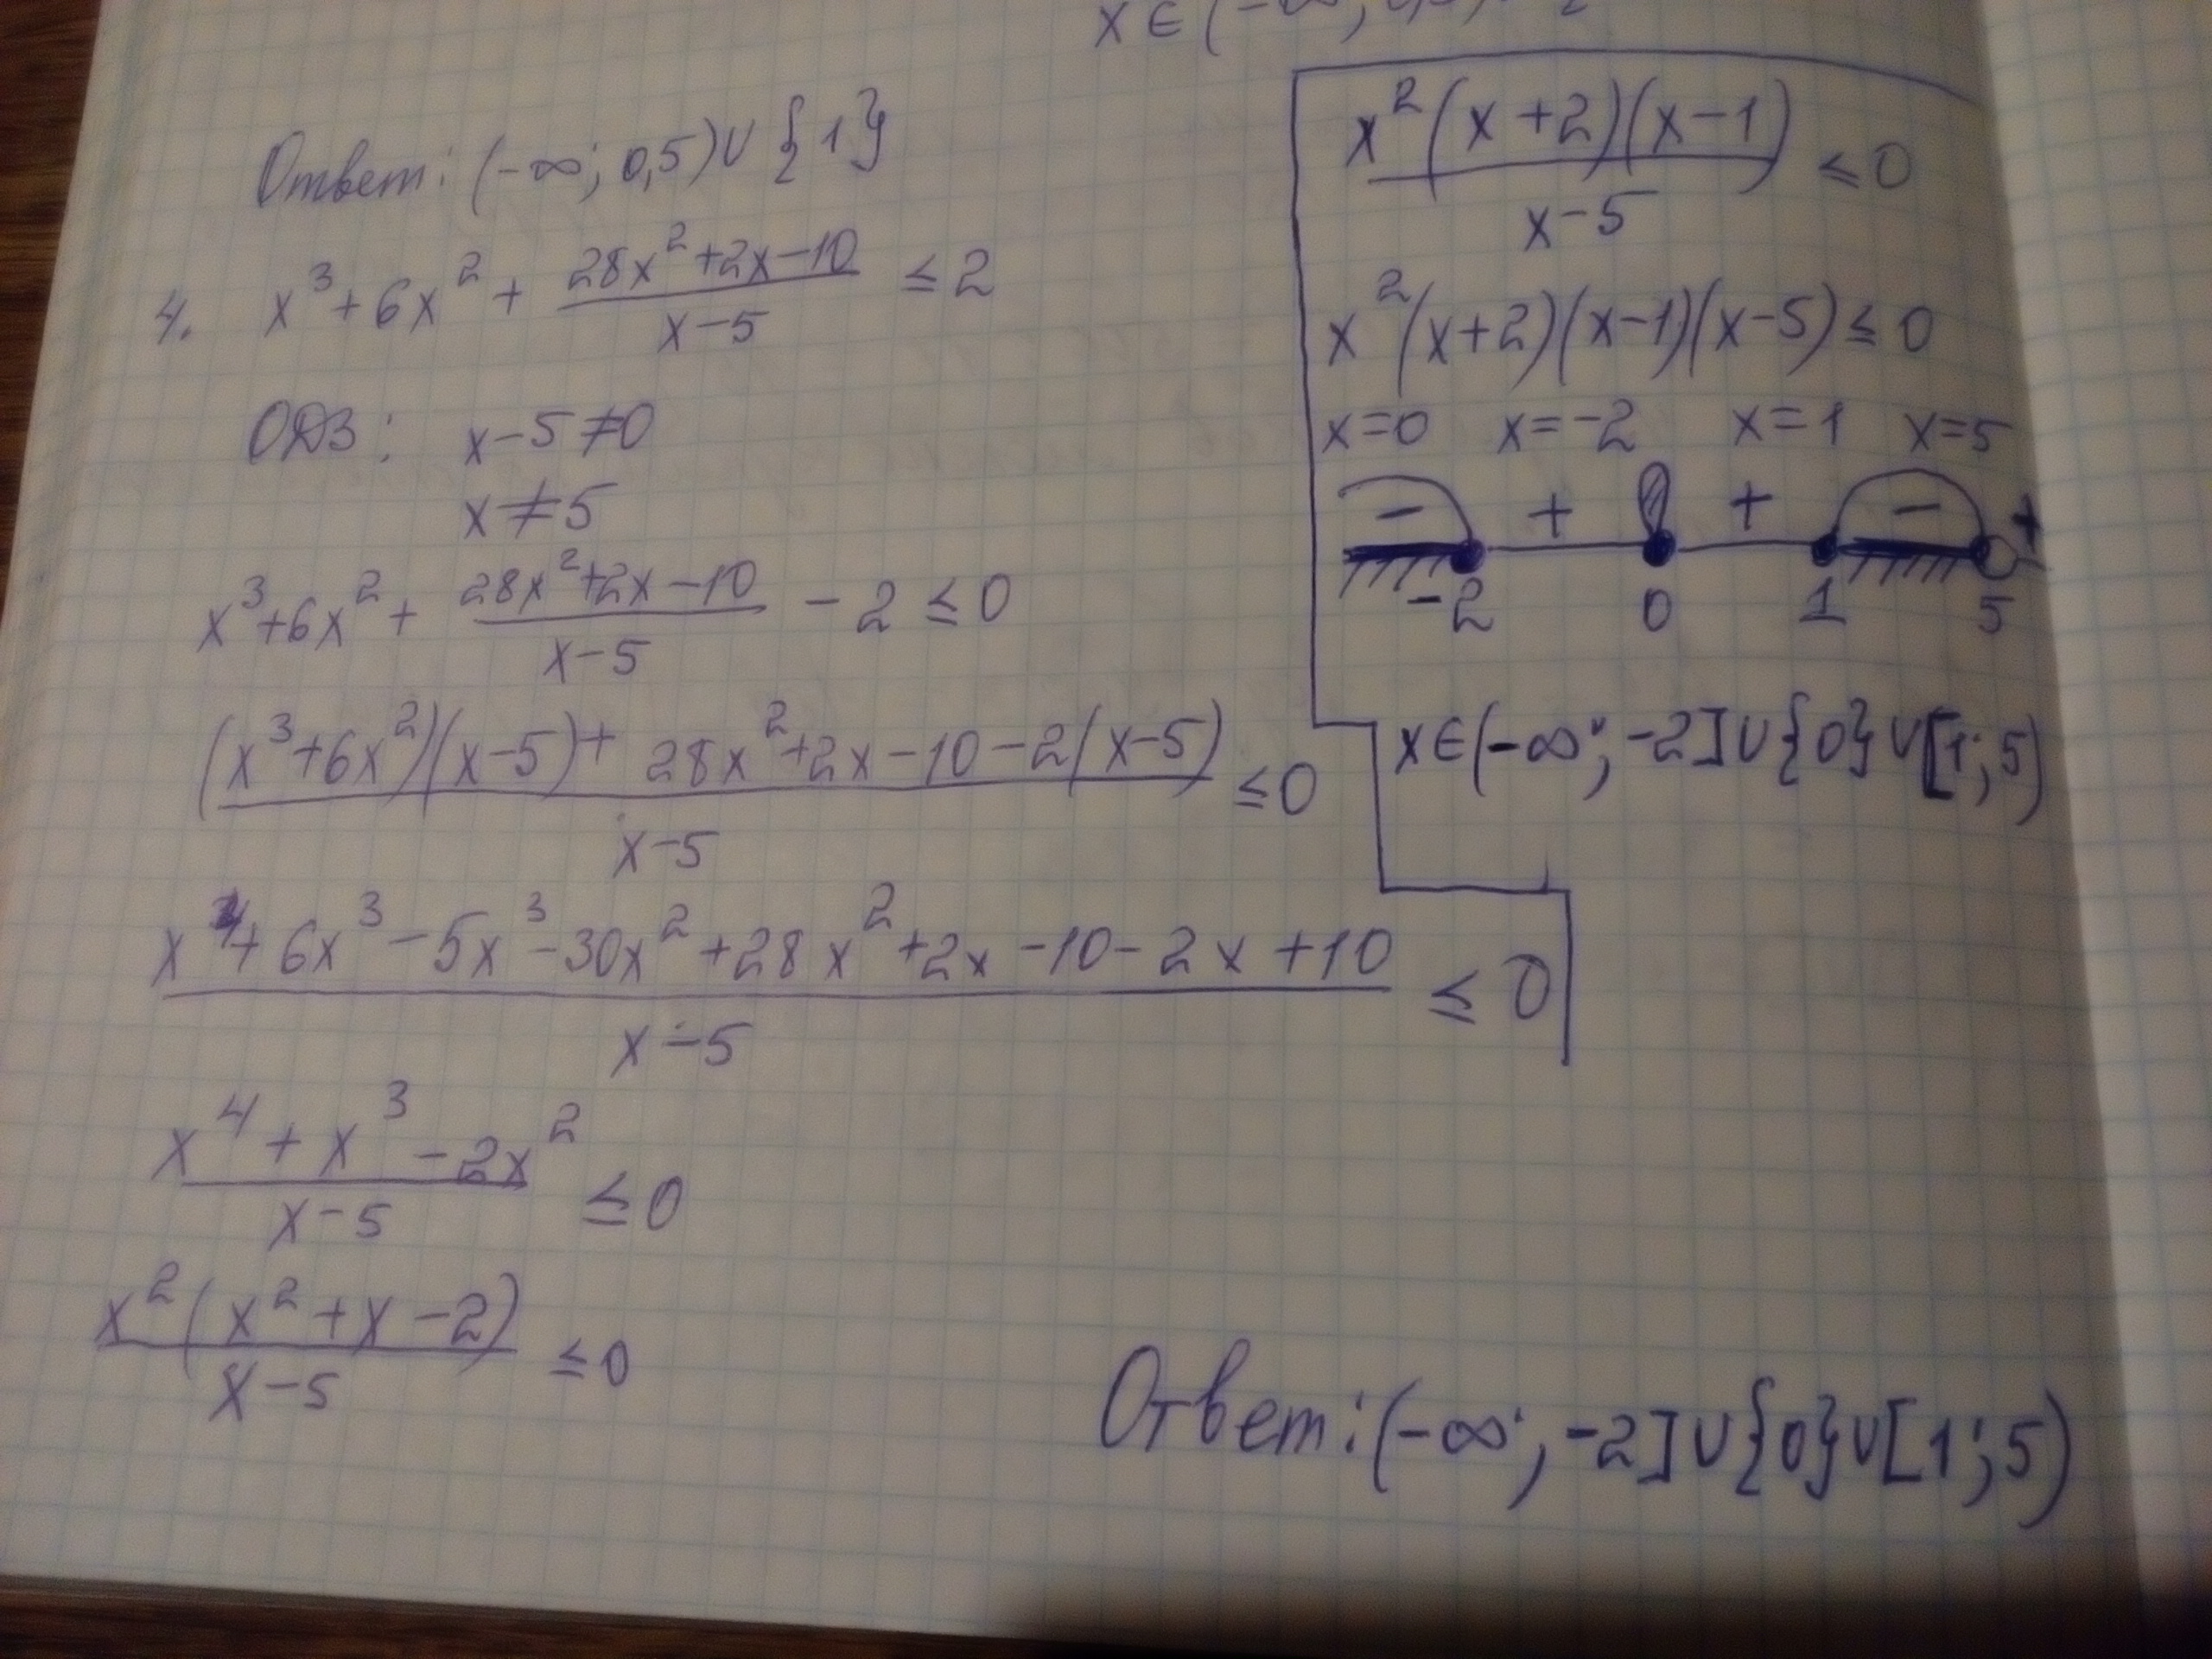 x ∈ (-∞; 0,5)
Ответ: (-∞; 0,5) ∪ {1}
4. x³ + 6x² + (28x² + 2x - 10)/(x - 5) ≤ 2
ОДЗ: x - 5 ≠ 0
x ≠ 5
x³ + 6x² + (28x² + 2x - 10)/(x - 5) - 2 ≤ 0
((x³ + 6x²)(x - 5) + 28x² + 2x - 10 - 2(x - 5))/(x - 5) ≤ 0
(x⁴ + 6x³ - 5x³ - 30x² + 28x² + 2x - 10 - 2x + 10)/(x - 5) ≤ 0
(x⁴ + x³ - 2x²)/(x - 5) ≤ 0
(x²(x² + x - 2))/(x - 5) ≤ 0
(x²(x + 2)(x - 1))/(x - 5) ≤ 0
x²(x + 2)(x - 1)(x - 5) ≤ 0
x = 0 x = -2 x = 1 x = 5
- + + - +
-2 0 1 5
x ∈ (-∞; -2] ∪ {0} ∪ [1; 5)
Ответ: (-∞; -2] ∪ {0} ∪ [1; 5)